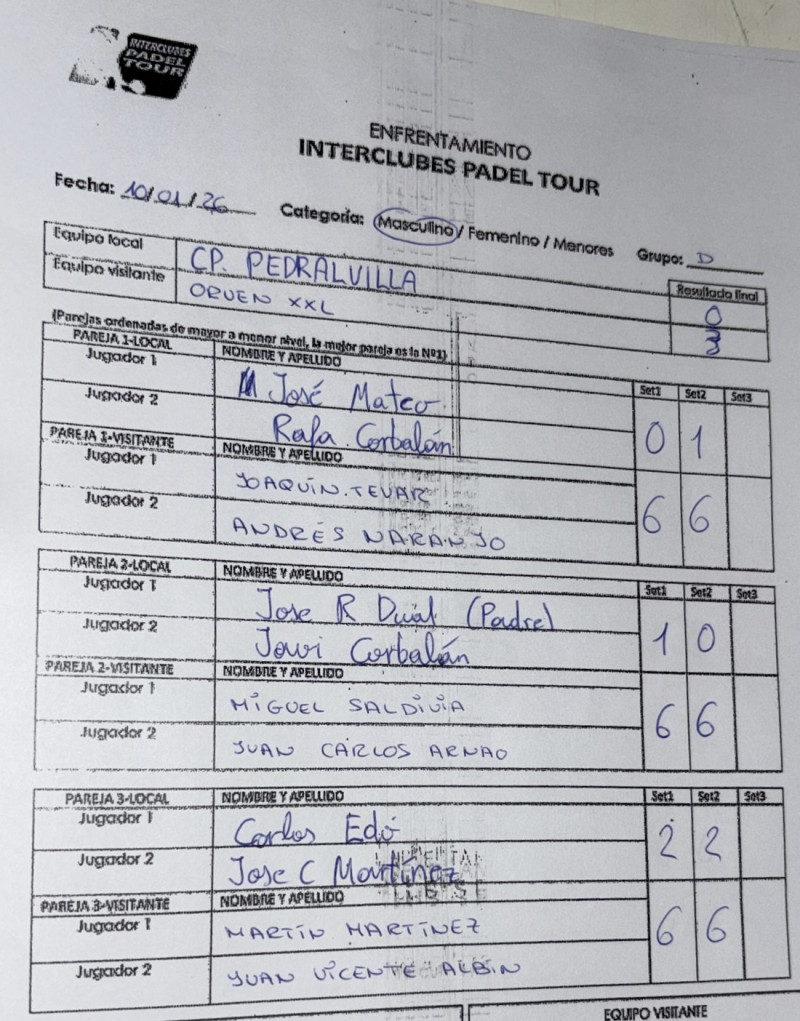 INTERCLUBES
PADEL
TOUR
ENFRENTAMIENTO
INTERCLUBES PADEL TOUR
Fecha: 10/01/26 Categoría: Masculino / Femenino / Menores Grupo: D
Equipo local CP. PEDRALVILLA Resultado final
0
Equipo visitante ORUEN XXL 3
(Parejas ordenadas de mayor a menor nivel, la mejor pareja es la Nº1)
PAREJA 1-LOCAL NOMBRE Y APELLIDO Set1 Set2 Set3
Jugador 1 José Mateo
Jugador 2 Rafa Corbalán 0 1
PAREJA 1-VISITANTE NOMBRE Y APELLIDO
Jugador 1 JOAQUÍN. TEVAR
Jugador 2 ANDRÉS NARANJO 6 6
PAREJA 2-LOCAL NOMBRE Y APELLIDO Set1 Set2 Set3
Jugador 1 Jose R (Padre)
Jugador 2 Javi Corbalán 1 0
PAREJA 2-VISITANTE NOMBRE Y APELLIDO
Jugador 1 MIGUEL SALDIVIA
Jugador 2 JUAN CARLOS ARNAO 6 6
PAREJA 3-LOCAL NOMBRE Y APELLIDO Set1 Set2 Set3
Jugador 1 Carlos Edó
Jugador 2 Jose C Martínez 2 2
PAREJA 3-VISITANTE NOMBRE Y APELLIDO
Jugador 1 MARTÍN MARTÍNEZ
Jugador 2 JUAN VICENTE ALBIN 6 6
EQUIPO VISITANTE